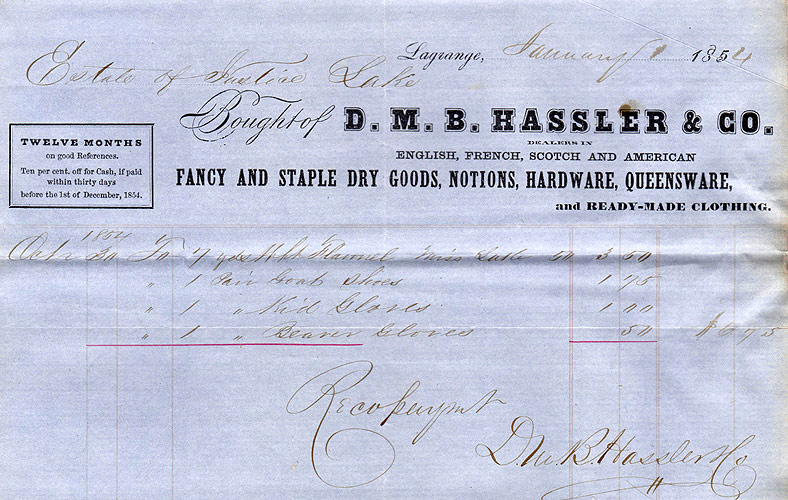 Lagrange, January 1 1854
Estate of Lake
Bought of D. M. B. HASSLER & CO.
DEALERS IN
ENGLISH, FRENCH, SCOTCH AND AMERICAN
FANCY AND STAPLE DRY GOODS, NOTIONS, HARDWARE, QUEENSWARE,
and READY-MADE CLOTHING.
TWELVE MONTHS
on good References.
Ten per cent. off for Cash, if paid
within thirty days
before the 1st of December, 1854.
1854
To 7 yds Flannel Miss Lake 50 3 50
" 1 Pair Goat Shoes 1 75
" 1 " Kid Gloves 1 00
" 1 " Beaver Gloves 50 $6 75
Rec paymt
D. M. B. Hassler & Co